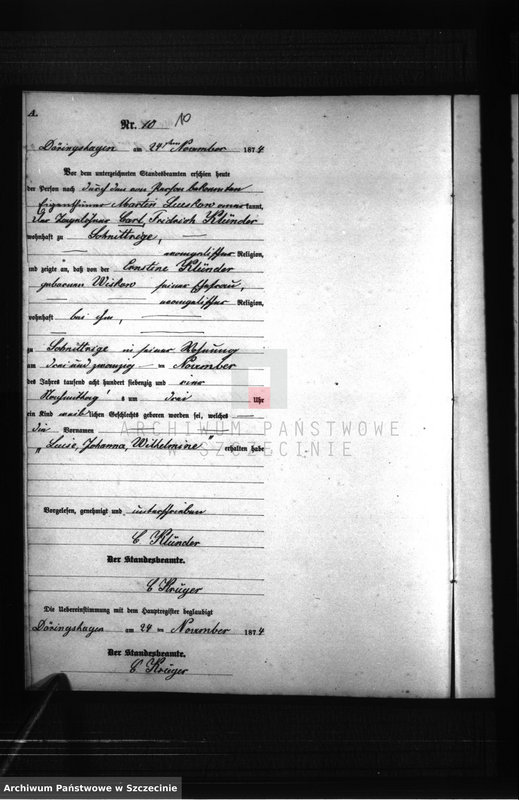 A.
Nr. 10 10
Döringshagen am 24ten November 1874
Vor dem unterzeichneten Standesbeamten erschien heute
der Person nach durch den von Person bekannten
Eigenthümer Martin Lueskow kannt,
Der Tagelöhner Carl Fridrich Klünder
wohnhaft zu Schnittrige,
evangelischer Religion,
und zeigte an, daß von der Ernstine Klünder
geborenen Wiskow seiner Ehefrau,
evangelischer Religion,
wohnhaft bei ihm,
zu Schnittrige in seiner Wohnung
am drei und zwanzig ten November
des Jahres tausend acht hundert siebenzig und vier
Nachmittag s um drei Uhr
ein Kind weib lichen Geschlechts geboren worden sei, welches
die Vornamen
"Luise, Johanna, Wilhelmine" erhalten habe
Vorgelesen, genehmigt und unterschrieben
C Klünder
Der Standesbeamte.
C Krüger
Die Uebereinstimmung mit dem Hauptregister beglaubigt
Döringshagen am 24 ten November 1874
Der Standesbeamte.
C Krüger
ARCHIWUM PAŃSTWOWE
W SZCZECINIE
Archiwum Państwowe w Szczecinie